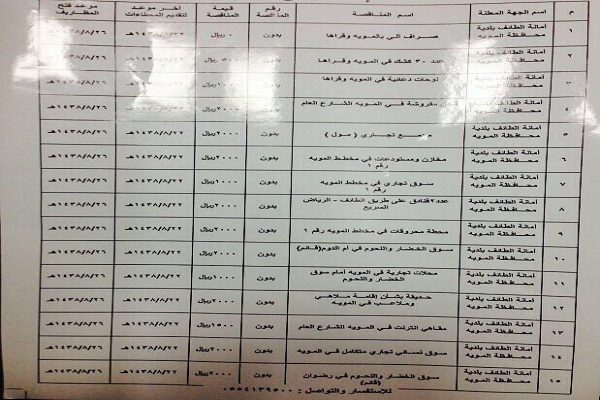 م اسم الجهة المعلنة اسم المناقصة رقم المناقصة قيمة المناقصة آخر موعد لتقديم العطاءات موعد فتح المظاريف
١ أمانة الطائف بلدية محافظة المويه صراف آلي بالمويه وقراها بدون ريال ١٤٣٨/٨/٢٢هـ ١٤٣٨/٨/٢٦هـ
٢ أمانة الطائف بلدية محافظة المويه عدد ٣٠ كشك في المويه وقراها بدون ريال ١٤٣٨/٨/٢٢هـ ١٤٣٨/٨/٢٦هـ
أمانة الطائف بلدية محافظة المويه لوحات دعائية في المويه وقراها بدون ريال ١٤٣٨/٨/٢٢هـ ١٤٣٨/٨/٢٦هـ
٤ أمانة الطائف بلدية محافظة المويه مفروشة في المويه الشارع العام بدون ٢٠٠٠ريال ١٤٣٨/٨/٢٢هـ ١٤٣٨/٨/٢٦هـ
٥ أمانة الطائف بلدية محافظة المويه تجاري ( مول ) بدون ٢٠٠٠ريال ١٤٣٨/٨/٢٢هـ ١٤٣٨/٨/٢٦هـ
٦ أمانة الطائف بلدية محافظة المويه مخازن ومستودعات في مخطط المويه رقم ١ بدون ٢٠٠٠ريال ١٤٣٨/٨/٢٢هـ ١٤٣٨/٨/٢٦هـ
٧ أمانة الطائف بلدية محافظة المويه سوق تجاري في مخطط المويه رقم ١ بدون ٢٠٠٠ريال ١٤٣٨/٨/٢٢هـ ١٤٣٨/٨/٢٦هـ
٨ أمانة الطائف بلدية محافظة المويه عدد٢فنادق على طريق الطائف - الرياض السريع بدون ٢٠٠٠ريال ١٤٣٨/٨/٢٢هـ ١٤٣٨/٨/٢٦هـ
٩ أمانة الطائف بلدية محافظة المويه محطة محروقات في مخطط المويه رقم ١ بدون ٢٠٠٠ريال ١٤٣٨/٨/٢٢هـ ١٤٣٨/٨/٢٦هـ
١٠ أمانة الطائف بلدية محافظة المويه سوق الخضار واللحوم في أم الدوم(قائم) بدون ٢٠٠٠ريال ١٤٣٨/٨/٢٢هـ ١٤٣٨/٨/٢٦هـ
١١ أمانة الطائف بلدية محافظة المويه محلات تجارية في المويه أمام سوق الخضار واللحوم بدون ٢٠٠٠ريال ١٤٣٨/٨/٢٢هـ ١٤٣٨/٨/٢٦هـ
١٢ أمانة الطائف بلدية محافظة المويه حديقة بشأن إقامة ملاهي وملاعب في المويه بدون ٢٠٠٠ريال ١٤٣٨/٨/٢٢هـ ١٤٣٨/٨/٢٦هـ
١٣ أمانة الطائف بلدية محافظة المويه مقاهي انترنت في المويه الشارع العام بدون ١٥٠٠ريال ١٤٣٨/٨/٢٢هـ ١٤٣٨/٨/٢٦هـ
١٤ أمانة الطائف بلدية محافظة المويه سوق نسائي تجاري متكامل في المويه بدون ٢٠٠٠ريال ١٤٣٨/٨/٢٢هـ ١٤٣٨/٨/٢٦هـ
١٥ أمانة الطائف بلدية محافظة المويه سوق الخضار واللحوم في رضوان (قائم) بدون ٢٠٠٠ريال ١٤٣٨/٨/٢٢هـ ١٤٣٨/٨/٢٦هـ
للاستفسار والتواصل : ٠٥٥٤١٣٩٥٠٠